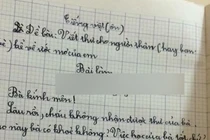 Tiếng việt (ôn)
Đề bài: Viết thư cho người thân (hay bạn
bè) kể về ước mơ của em
Bài làm
Bà kính mến!
Lâu rồi, cháu không nhận được thư của bà.
này bà có khoẻ không? Việc học của bà